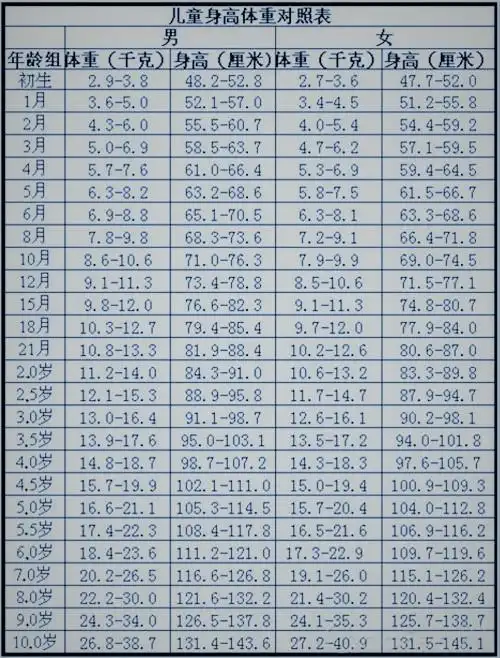 儿童身高体重对照表
男 女
年龄组 体重（千克） 身高（厘米） 体重（千克） 身高（厘米）
初生 2.9-3.8 48.2-52.8 2.7-3.6 47.7-52.0
1月 3.6-5.0 52.1-57.0 3.4-4.5 51.2-55.8
2月 4.3-6.0 55.5-60.7 4.0-5.4 54.4-59.2
3月 5.0-6.9 58.5-63.7 4.7-6.2 57.1-59.5
4月 5.7-7.6 61.0-66.4 5.3-6.9 59.4-64.5
5月 6.3-8.2 63.2-68.6 5.8-7.5 61.5-66.7
6月 6.9-8.8 65.1-70.5 6.3-8.1 63.3-68.6
8月 7.8-9.8 68.3-73.6 7.2-9.1 66.4-71.8
10月 8.6-10.6 71.0-76.3 7.9-9.9 69.0-74.5
12月 9.1-11.3 73.4-78.8 8.5-10.6 71.5-77.1
15月 9.8-12.0 76.6-82.3 9.1-11.3 74.8-80.7
18月 10.3-12.7 79.4-85.4 9.7-12.0 77.9-84.0
21月 10.8-13.3 81.9-88.4 10.2-12.6 80.6-87.0
2.0岁 11.2-14.0 84.3-91.0 10.6-13.2 83.3-89.8
2.5岁 12.1-15.3 88.9-95.8 11.7-14.7 87.9-94.7
3.0岁 13.0-16.4 91.1-98.7 12.6-16.1 90.2-98.1
3.5岁 13.9-17.6 95.0-103.1 13.5-17.2 94.0-101.8
4.0岁 14.8-18.7 98.7-107.2 14.3-18.3 97.6-105.7
4.5岁 15.7-19.9 102.1-111.0 15.0-19.4 100.9-109.3
5.0岁 16.6-21.1 105.3-114.5 15.7-20.4 104.0-112.8
5.5岁 17.4-22.3 108.4-117.8 16.5-21.6 106.9-116.2
6.0岁 18.4-23.6 111.2-121.0 17.3-22.9 109.7-119.6
7.0岁 20.2-26.5 116.6-126.8 19.1-26.0 115.1-126.2
8.0岁 22.2-30.0 121.6-132.2 21.4-30.2 120.4-132.4
9.0岁 24.3-34.0 126.5-137.8 24.1-35.3 125.7-138.7
10.0岁 26.8-38.7 131.4-143.6 27.2-40.9 131.5-145.1